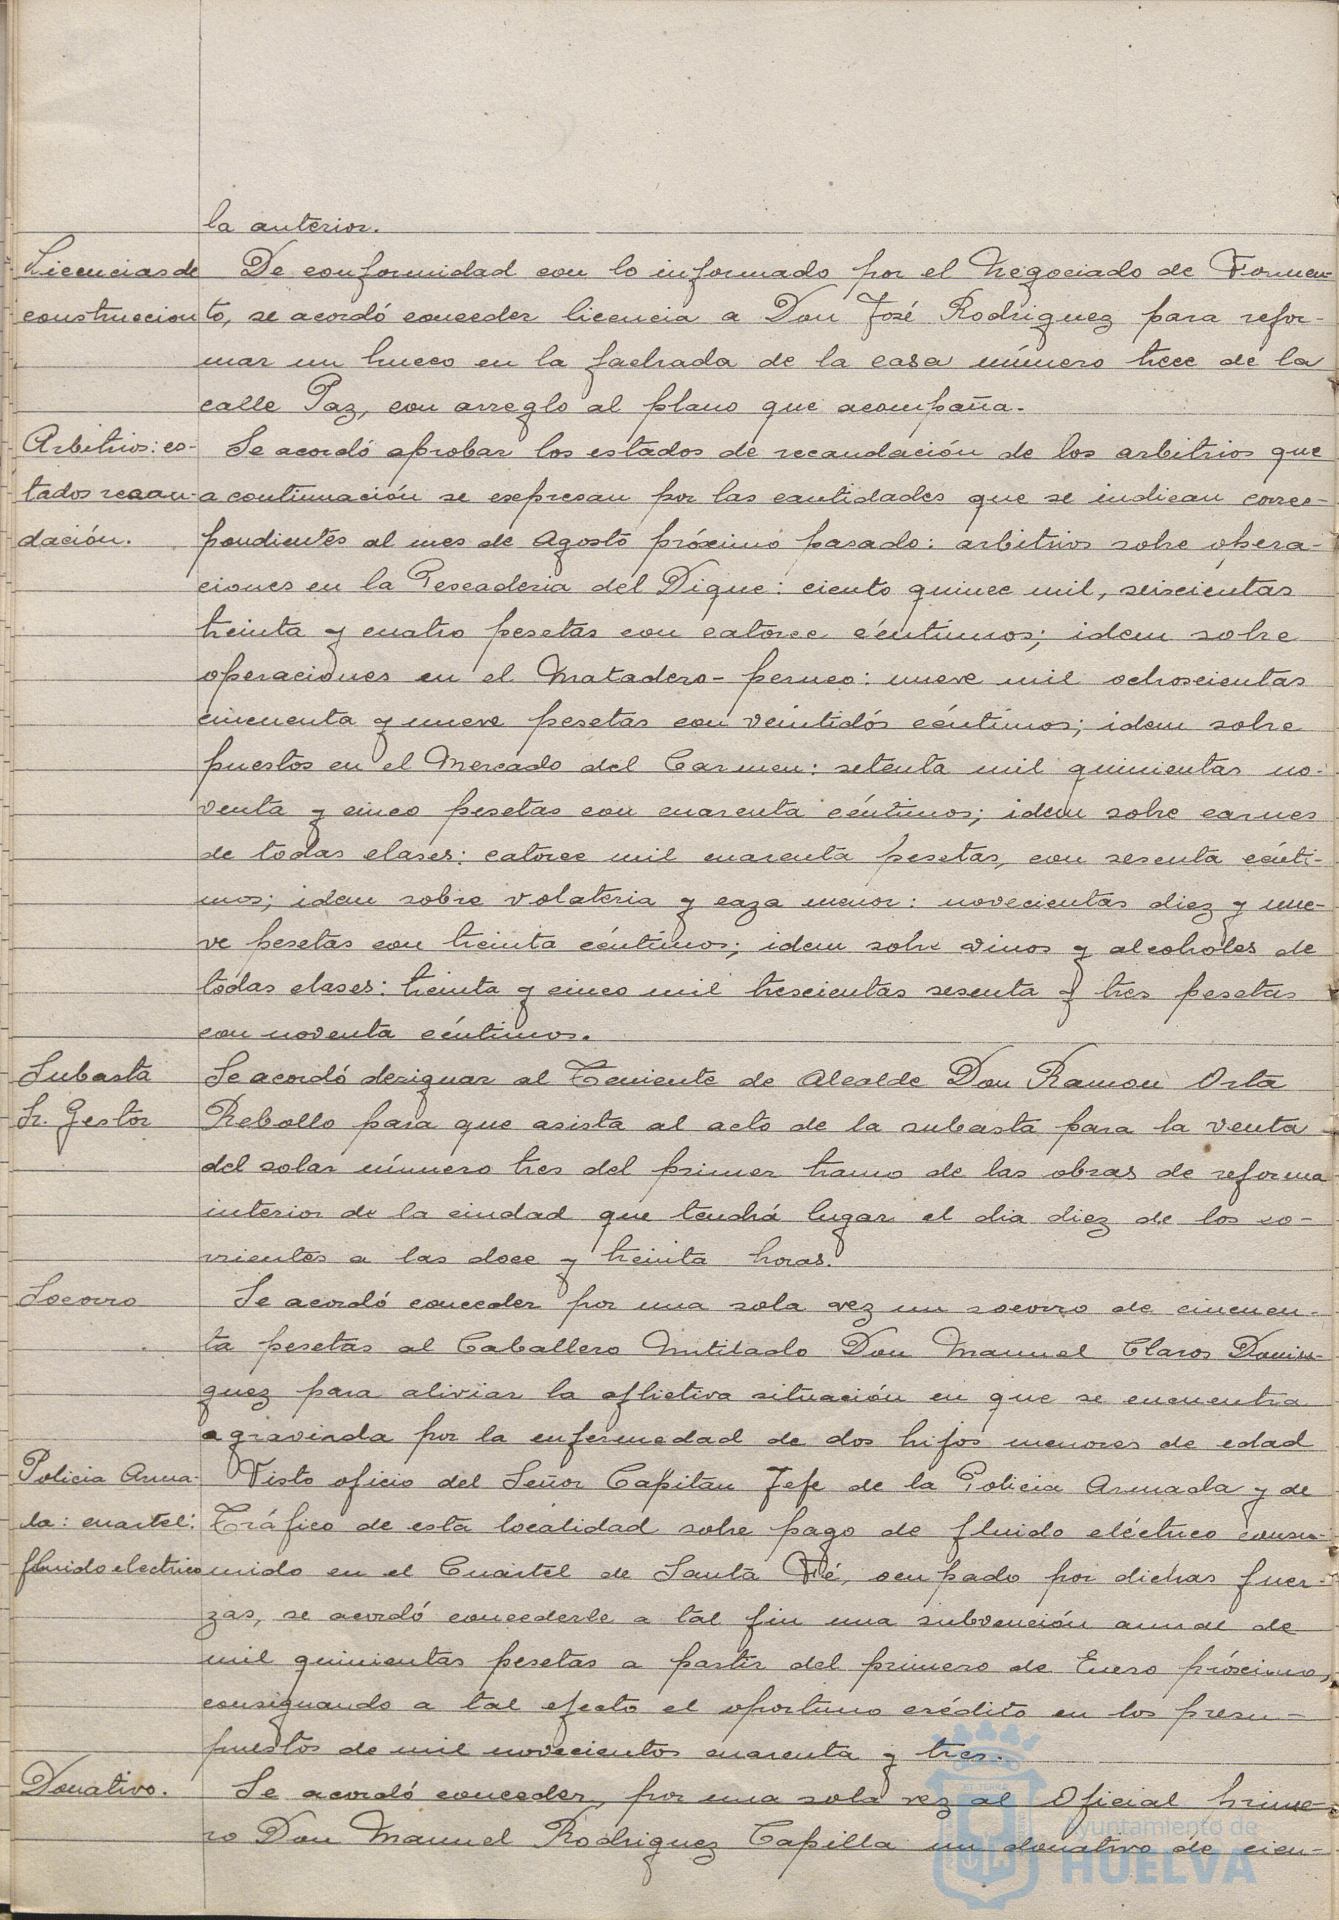 la anterior.
Licencias de De conformidad con lo informado por el Negociado de Fomen-
construccion to, se acordó conceder licencia a Don José Rodriguez para refor-
mar un hueco en la fachada de la casa número trece de la
calle Paz, con arreglo al plano que acompaña.
Arbitrios: es- Se acordó aprobar los estados de recaudación de los arbitrios que
tados recau- a continuación se expresan por las cantidades que se indican corres-
dación. pondientes al mes de Agosto próximo pasado: arbitrios sobre opera-
ciones en la Pescaderia del Dique: ciento quince mil, seiscientas
treinta y cuatro pesetas con catorce céntimos; idem sobre
operaciones en el Matadero-perneo: nueve mil ochoscientas
cincuenta y nueve pesetas con veintidós céntimos; idem sobre
puestos en el Mercado del Carmen: setenta mil quinientas no-
venta y cinco pesetas con cuarenta céntimos; idem sobre carnes
de todas clases: catorce mil cuarenta pesetas, con sesenta cénti-
mos; idem sobre volateria y caza menor: novecientas diez y nue-
ve pesetas con treinta céntimos; idem sobre vinos y alcoholes de
todas clases: treinta y cinco mil trescientas sesenta y tres pesetas
con noventa céntimos.
Subasta Se acordó designar al Teniente de Alcalde Don Ramon Orta
Sr. Gestor Rebollo para que asista al acto de la subasta para la venta
del solar número tres del primer tramo de las obras de reforma
interior de la ciudad que tendrá lugar el dia diez de los co-
rrientes a las doce y treinta horas.
Socorro Se acordó conceder por una sola vez un socorro de cincuen-
ta pesetas al Caballero Mutilado Don Manuel Claros Domin-
guez para aliviar la aflictiva situación en que se encuentra
agraviada por la enfermedad de dos hijos menores de edad
Policia Arma- Visto oficio del Señor Capitán Jefe de la Policia Armada y de
da: cuartel: Tráfico de esta localidad sobre pago de fluido eléctrico consu-
fluido electrico mido en el Cuartel de Santa Fé, ocupado por dichas fuer-
zas, se acordó concederle a tal fin una subvención anual de
mil quinientas pesetas a partir del primero de Enero próximo,
consignando a tal efecto el oportuno crédito en los presu-
puestos de mil novecientos cuarenta y tres.
Donativo. Se acordó conceder, por una sola vez al Oficial prime-
ro Don Manuel Rodriguez Capilla un donativo de cien-
Ayuntamiento de
HUELVA